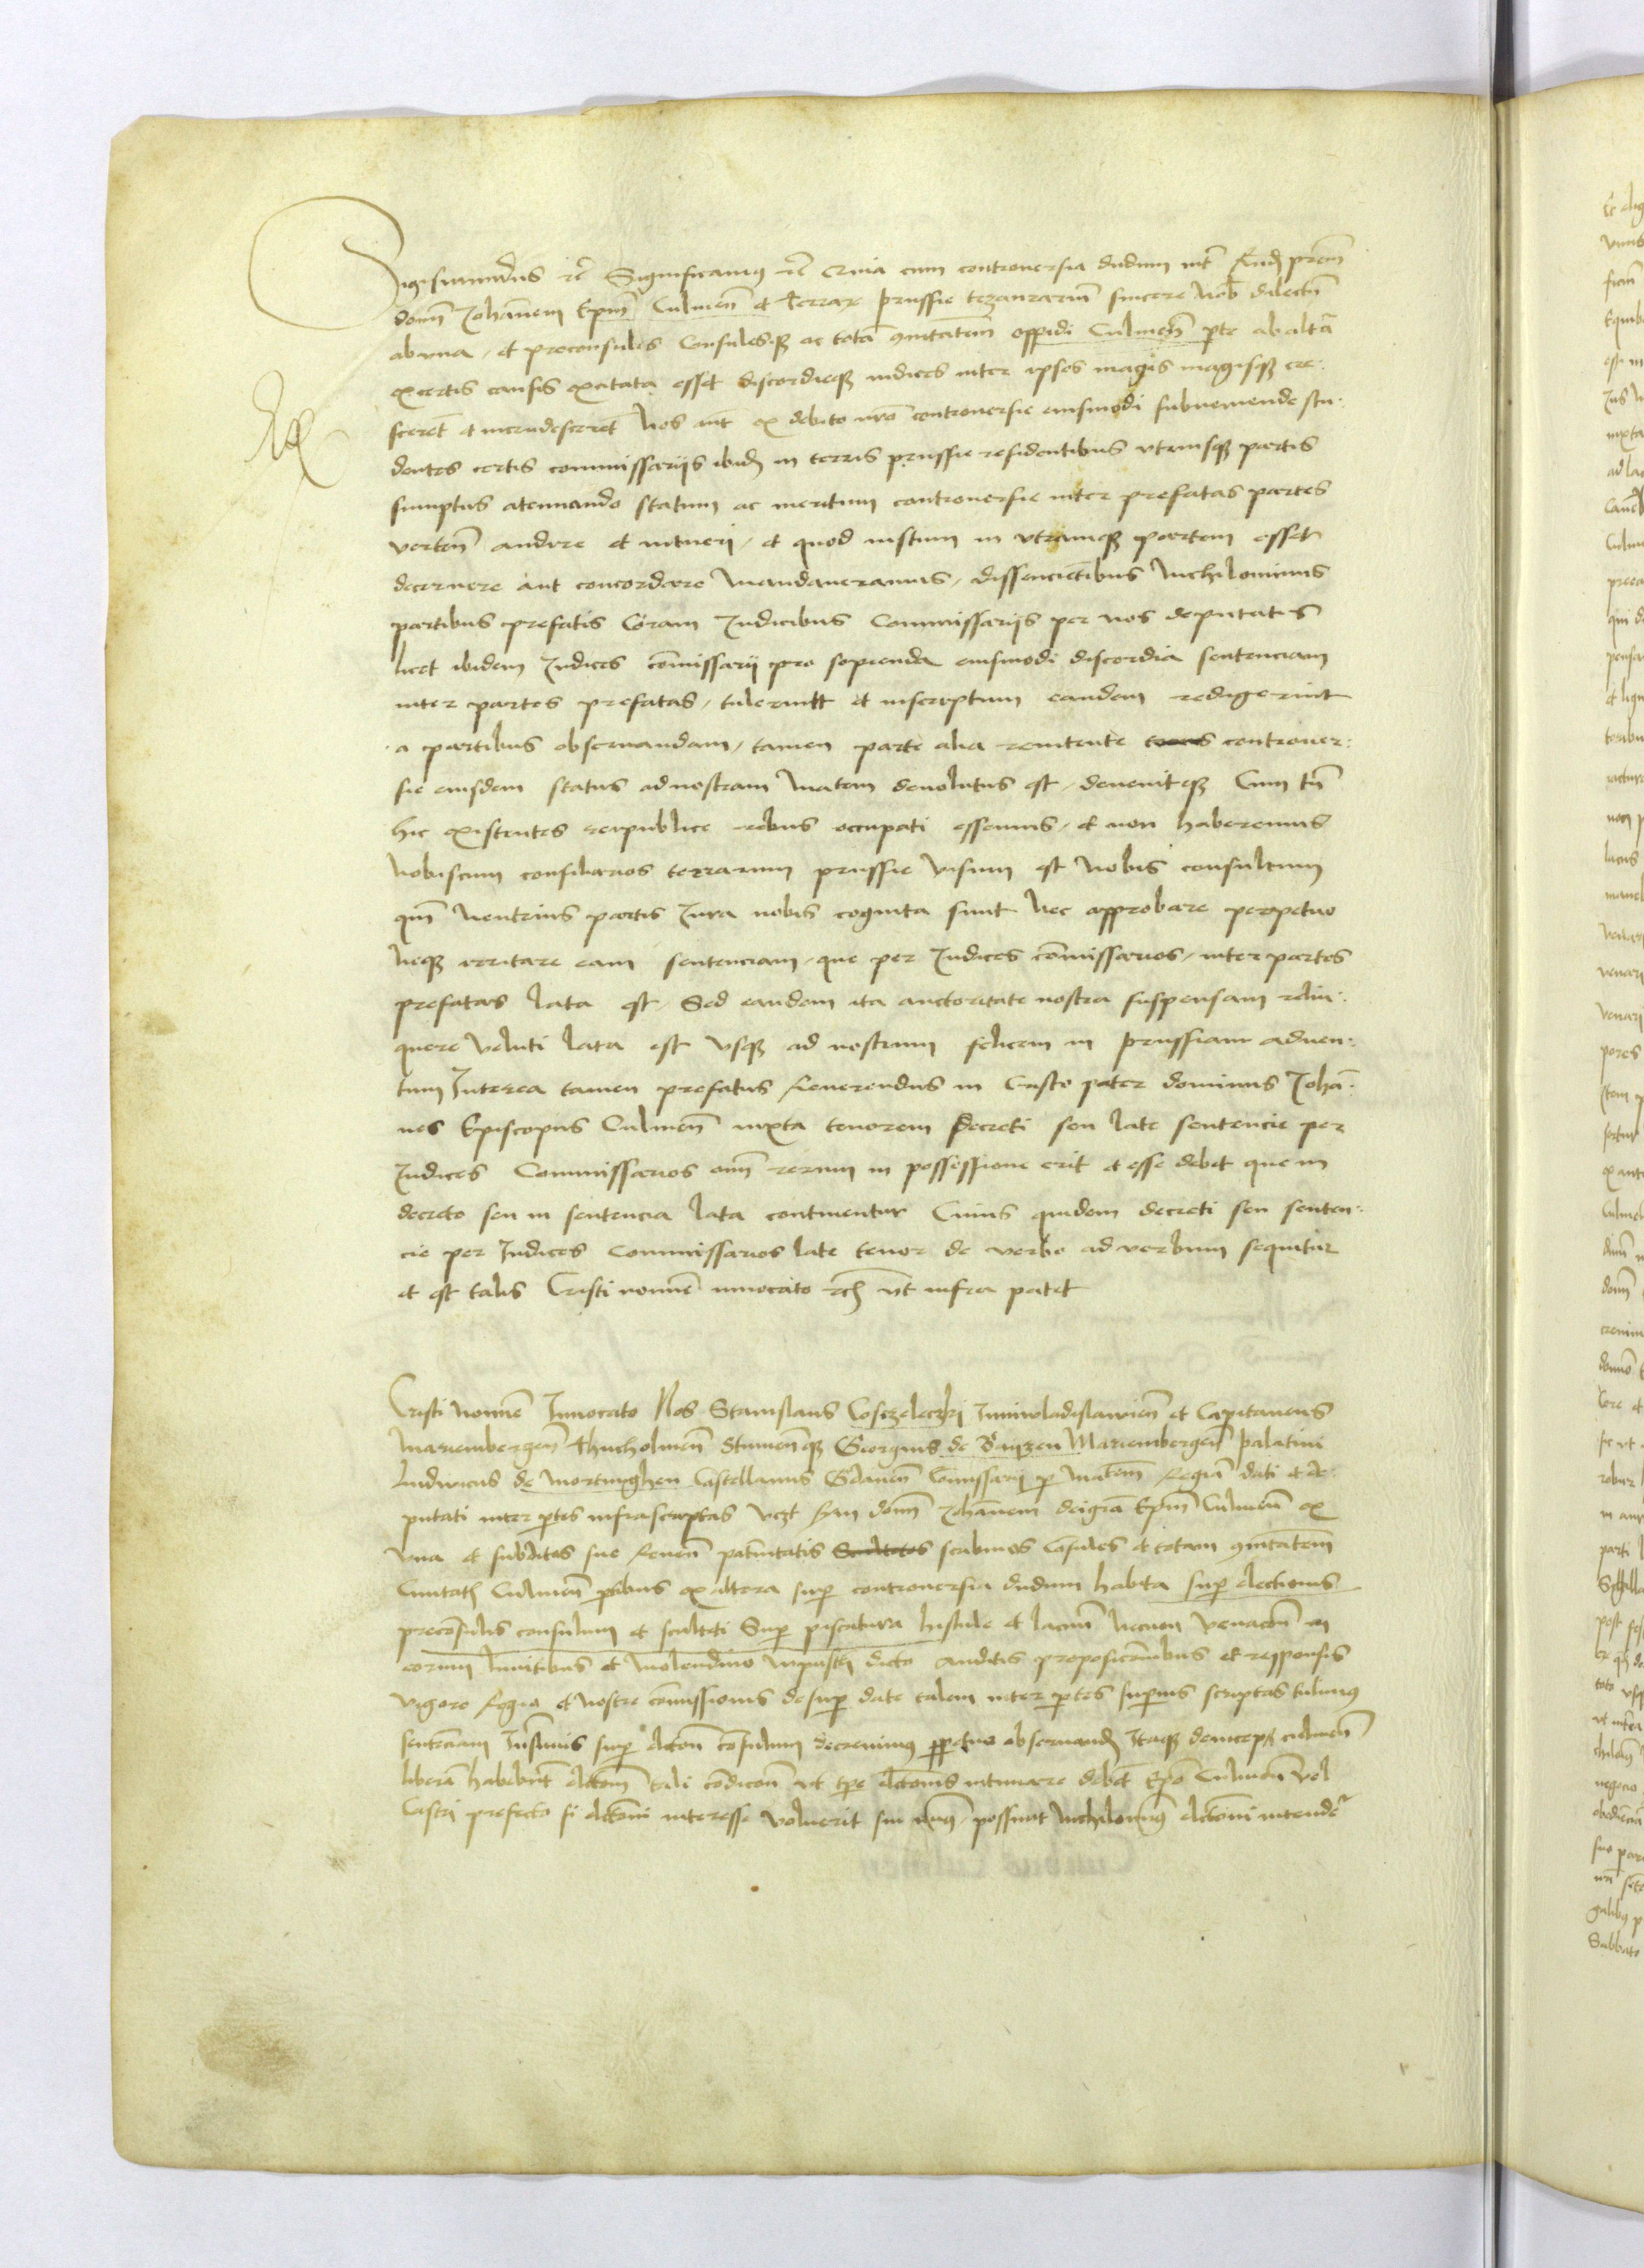 Sigismundus etc̃ Significamus etc̃ Quia cum controuersia dudum int̃ Rñd prēm
domñ Johānem Ep̄m Culmeñ et Terrarꝝ prussie tezaurarium sincere nob̄ dilectū
ab vna, et preconsules Consulesqꝫ ac totā cōītatem oppidi Culmeñ pte ab altā
ex certis causis exitata esset discordieqꝫ indices inter ipsos magis magisqꝫ cre:
sceret et incrudesceret Nos aut̄ ex debito nr̄o controuersie eiusmodi subueniende stu:
dentes certis commissarijs ibid̄ in terris prussie residentibus vtriusqꝫ partis
sumptus atenuando statum ac meritum controuersie inter prefatas partes
verteñ audire et intueri, et quod iustum in vtramqꝫ partem esset
decernere aut concordare mandaueramus, dissencientibus nichilominus
partibus prefatis Coram Judicibus Commissarijs per nos deputatis
licet ibidem Judices cōmissarij pro sopienda eiusmodi discordia sentenciam
inter partes prefatas, tulerint et inscriptum eandem redigerint
a partibus obseruandam, tamen parte alia renitente controuer:
sie eiusdem status ad nostram Matem deuolutus est, deuenitqꝫ Cum tñ
hic existentes reipublice rebus occupati essemus, et non haberemus
nobiscum consiliarios terrarum prussie visum est nobis consultum
qm̄ neutrius partis Jura nobis cognita sunt nec approbare perpetuo
neqꝫ irritare eam sentenciam, que per Judices cōmissarios, inter partes
prefatas lata est, Sed eandem ita auctoritate nostra suspensam relin:
quere veluti lata est vsqꝫ ad nostrum felicem in prussiam aduen:
tum Interea tamen prefatus Reuerendus in Cristo pater dominus Johā:
nes Episcopus Culmeñ iuxta tenorem decreti seu late sentencie per
Judices Commissarios om̄ rerum in possessione erit et esse debet que in
decreto seu in sentencia lata continentur Cuius quidem decreti seu senten:
cie per Judices Commissarios late tenor de verbo ad verbum sequitur
et est talis Cristi nomīe inuocato etc̃ vt infra patet
Cristi nomīe Inuocato Nos Stanislaus Cosczeleczki Juniwladislauieñ et Capitaneus
Mariembergeñ Thucholieñ Stumenqꝫ Georgius de Bayzen Mariembergeñ palatini
Ludwicus de Mortanghen Castellanus Gdaneñ Cōmissarij p Matem̄ Regiā dati et de:
putati inter ptes infrascriptas vczt domñ Johānem deigrā Ep̄m Culmeñ ex
vna et subditos sue Reueñ pat̄nitatis scabinos Cōsules et totam cōītatem
Ciuitat̄ Culmeñ ptibus ex altera sup controuersia dudum habita sup electionis
precōsulis consulum et sculteti Sup piscatura Wistule et lacuū necnon venacōn in
eorum limitibus et molendino dicto auditis proposicōnibus et responsis
vigore Regia et nostre cōmissionis desup date talem inter ptes superius scriptas tulimus
sentēciam Inprimis sup elcōn cōsulum decreuimus ppetuo obseruand̄ Itaqꝫ deincep̄ culmeñ
liberā habebunt elcōnem tali condicōn vt tpe elcōnis intimare debēt Epō Culmeñ vel
Castri prefecto si elcōni interesse voluerit sin minus, possunt nichilomin9 elcōni intendē